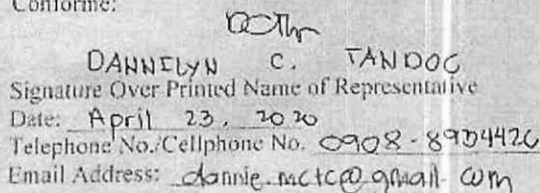 Conforme:
DANNILYN C. TANDOC
Signature Over Printed Name of Representative
Date: April 23, 2020
Telephone No./Cellphone No. 0908-8904426
Email Address: dannie.mctc@gmail.com